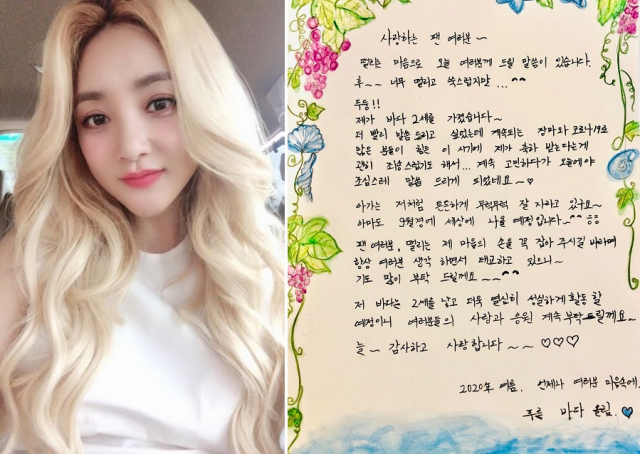 사랑하는 팬 여러분~
떨리는 마음으로 오늘 여러분께 드릴 말씀이 있습니다.
후~~ 너무 떨리고 쑥스럽지만...^^
두둥!!
제가 바다 2세를 가졌습니다~
더 빨리 말씀 드리고 싶었는데 계속되는 장마와 코로나19로
많은 분들이 힘든 이 시기에 제가 축하 받는다는게
괜히 죄송스럽기도 해서... 계속 고민하다가 오늘에야
조심스레 말씀 드리게 되었네요~♡
아가는 저처럼 튼튼하게 무럭무럭 잘 자라고 있구요~
아마도 9월경에 세상에 나올 예정입니다~^^ ㅎㅎ
팬 여러분, 떨리는 제 마음의 손을 꼭 잡아 주시길 바라며
항상 여러분 생각 하면서 태교하고 있으니~
기도 많이 부탁 드릴께요~~^^
저 바다는 2세를 낳고 더욱 열심히 성실하게 활동 할
예정이니 여러분들의 사랑과 응원 계속 부탁드릴께요~
늘~ 감사하고 사랑합니다~~♡♡♡
2020年 여름. 언제나 여러분 마음속에.
푸를 바다 올림.